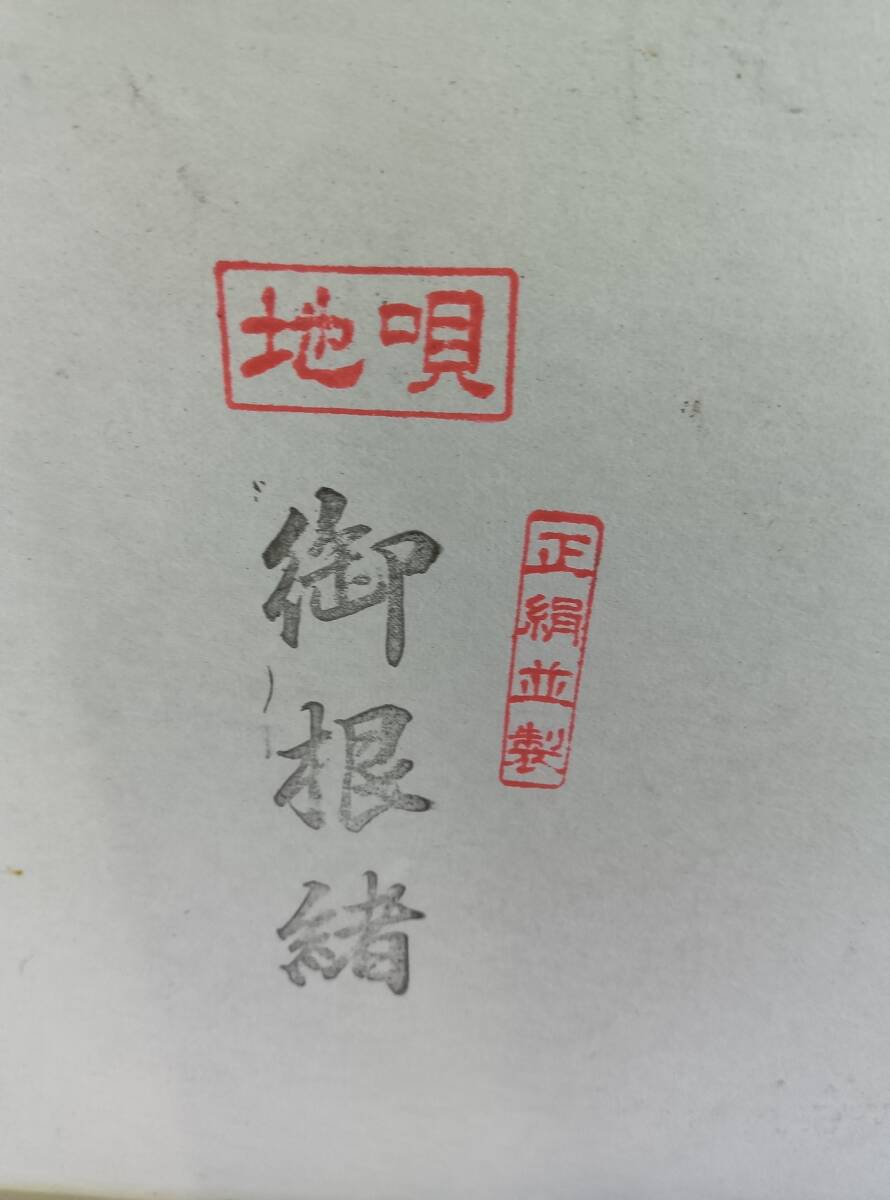 地唄
御根緒
正絹並製